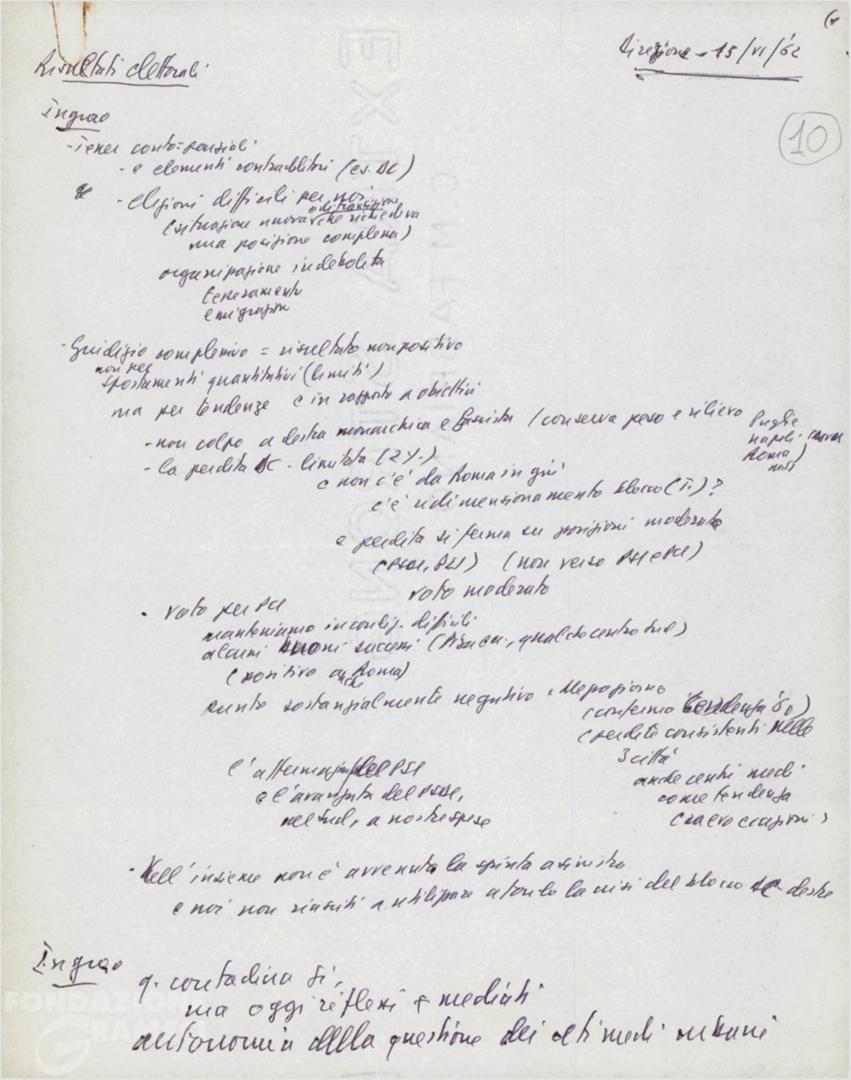 Direzione - 15/VI/62
Risultati elettorali
10
Ingrao
- Tener conto = parziali
- e elementi contradditori (es. DC)
- elezioni difficili per noi
e di transizione
(situazione nuova che richiedeva
una posizione complessa)
organizzazione indebolita
tesseramento
emigrazion
- Giudizio complessivo = risultato non positivo
non per
spostamenti quantitativi (limiti)
ma per tendenze e in rapporto a obiettivi
- non colpo a destra monarchica e fascista (conserva peso e rilievo Puglie
Napoli
Roma)
msi
- la perdita DC - limitata (2%.)
e non c'è da Roma in giù
c'è ridimensionamento blocco (T.) ?
e perdita si ferma su posizioni moderate
(PSDI, PSI) (non verso PSI e PCI)
voto moderato
- voto per PCI
manteniamo in condiz. difficili
alcuni buoni successi (Pisa, qualche centro sud)
(positivo anche Roma)
punto sostanzialmente negativo = Mezzogiorno
(conferma tendenza '60)
(perdite consistenti nelle
3 città
anche centri medi
come tendenza
(salvo eccezioni)
l'affermaz. del PSI
e l'avanzata del PSDI,
nel Sud, a nostre spese
- Nell'insieme non è avvenuta la spinta a sinistra
e noi non riusciti a utilizzare a fondo la crisi del blocco DC destre
Ingrao
q. contadina sì,
ma oggi riflessi + mediati
autonomia della questione dei ceti medi urbani
FONDAZIONE
GRAMSCI